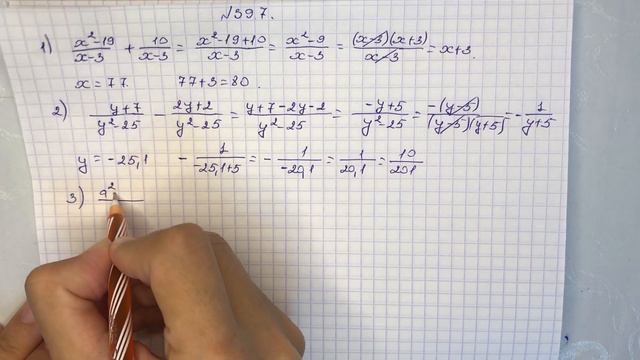 №397.
1) (x²-19)/(x-3) + 10/(x-3) = (x²-19+10)/(x-3) = (x²-9)/(x-3) = ((x-3)(x+3))/(x-3) = x+3.
x = 77. 77+3=80.
2) (y+7)/(y²-25) - (2y+2)/(y²-25) = (y+7-2y-2)/(y²-25) = (-y+5)/(y²-25) = (-(y-5))/((y-5)(y+5)) = -1/(y+5)
y = -25,1 -1/(-25,1+5) = -1/(-20,1) = 1/(20,1) = 10/201
3) a²